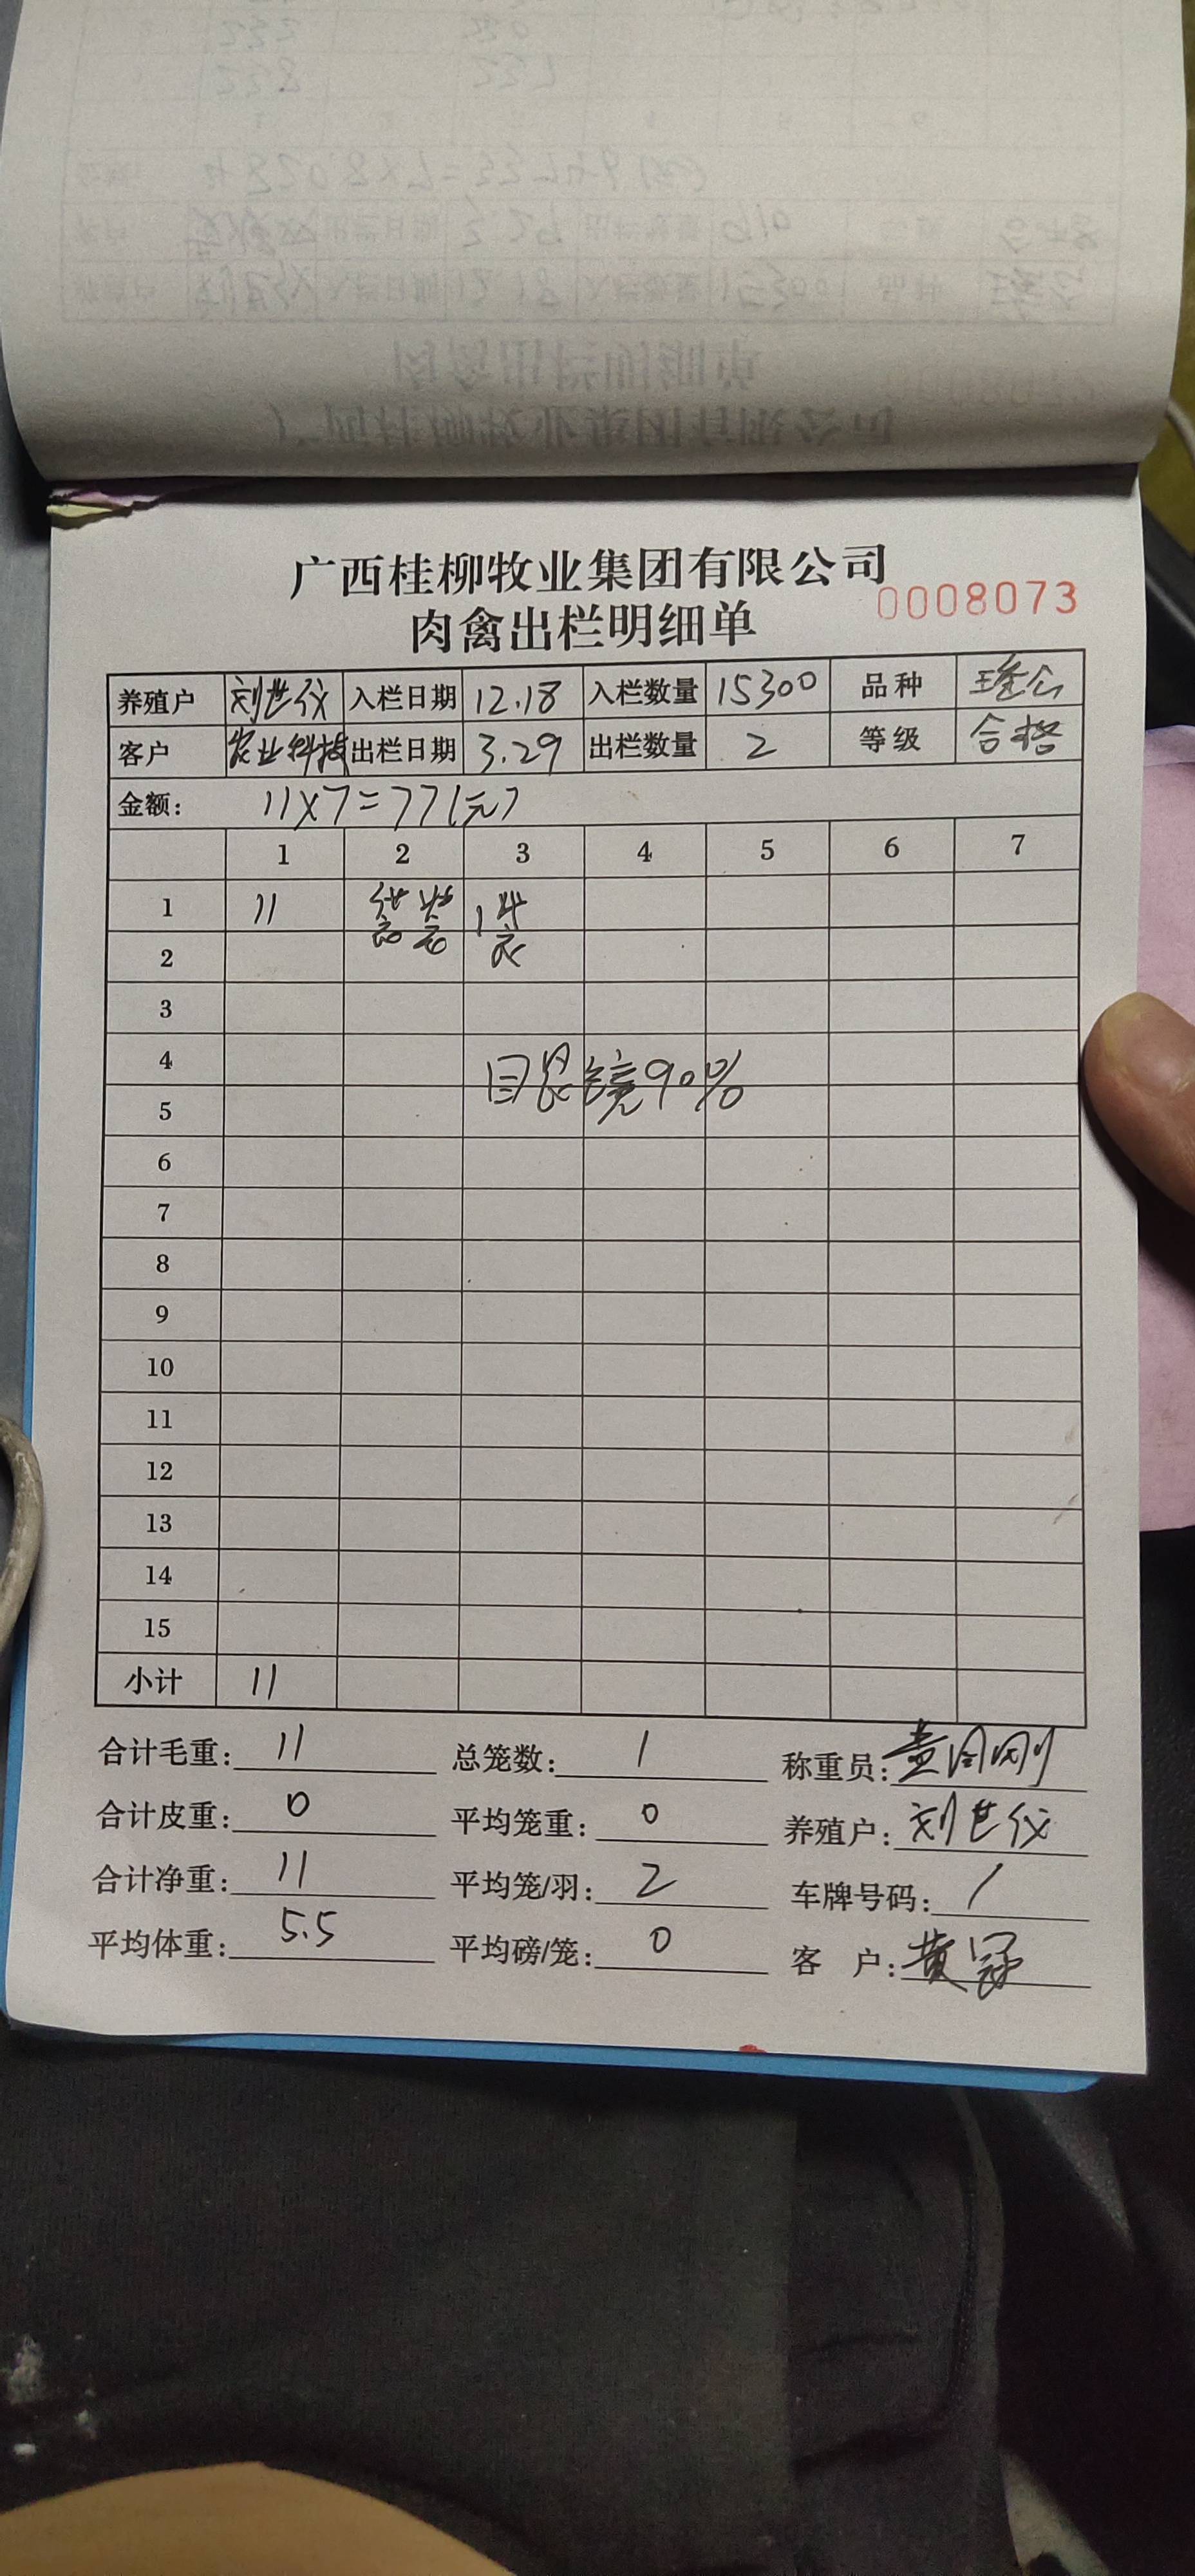 广西桂柳牧业集团有限公司
肉禽出栏明细单
0008073
养殖户 刘世仪 入栏日期 12.18 入栏数量 15300 品种 瑶公
客户 农业科技 出栏日期 3.29 出栏数量 2 等级 合格
金额: 11×7=77(元)
1 2 3 4 5 6 7
1 11 袋装 1代
2
3
4
目艮镜90%
5
6
7
8
9
10
11
12
13
14
15
小计 11
合计毛重: 11 总笼数: 1 称重员:
合计皮重: 0 平均笼重: 0 养殖户: 刘世仪
合计净重: 11 平均笼/羽: 2 车牌号码: /
平均体重: 5.5 平均磅/笼: 0 客 户: 黄冠